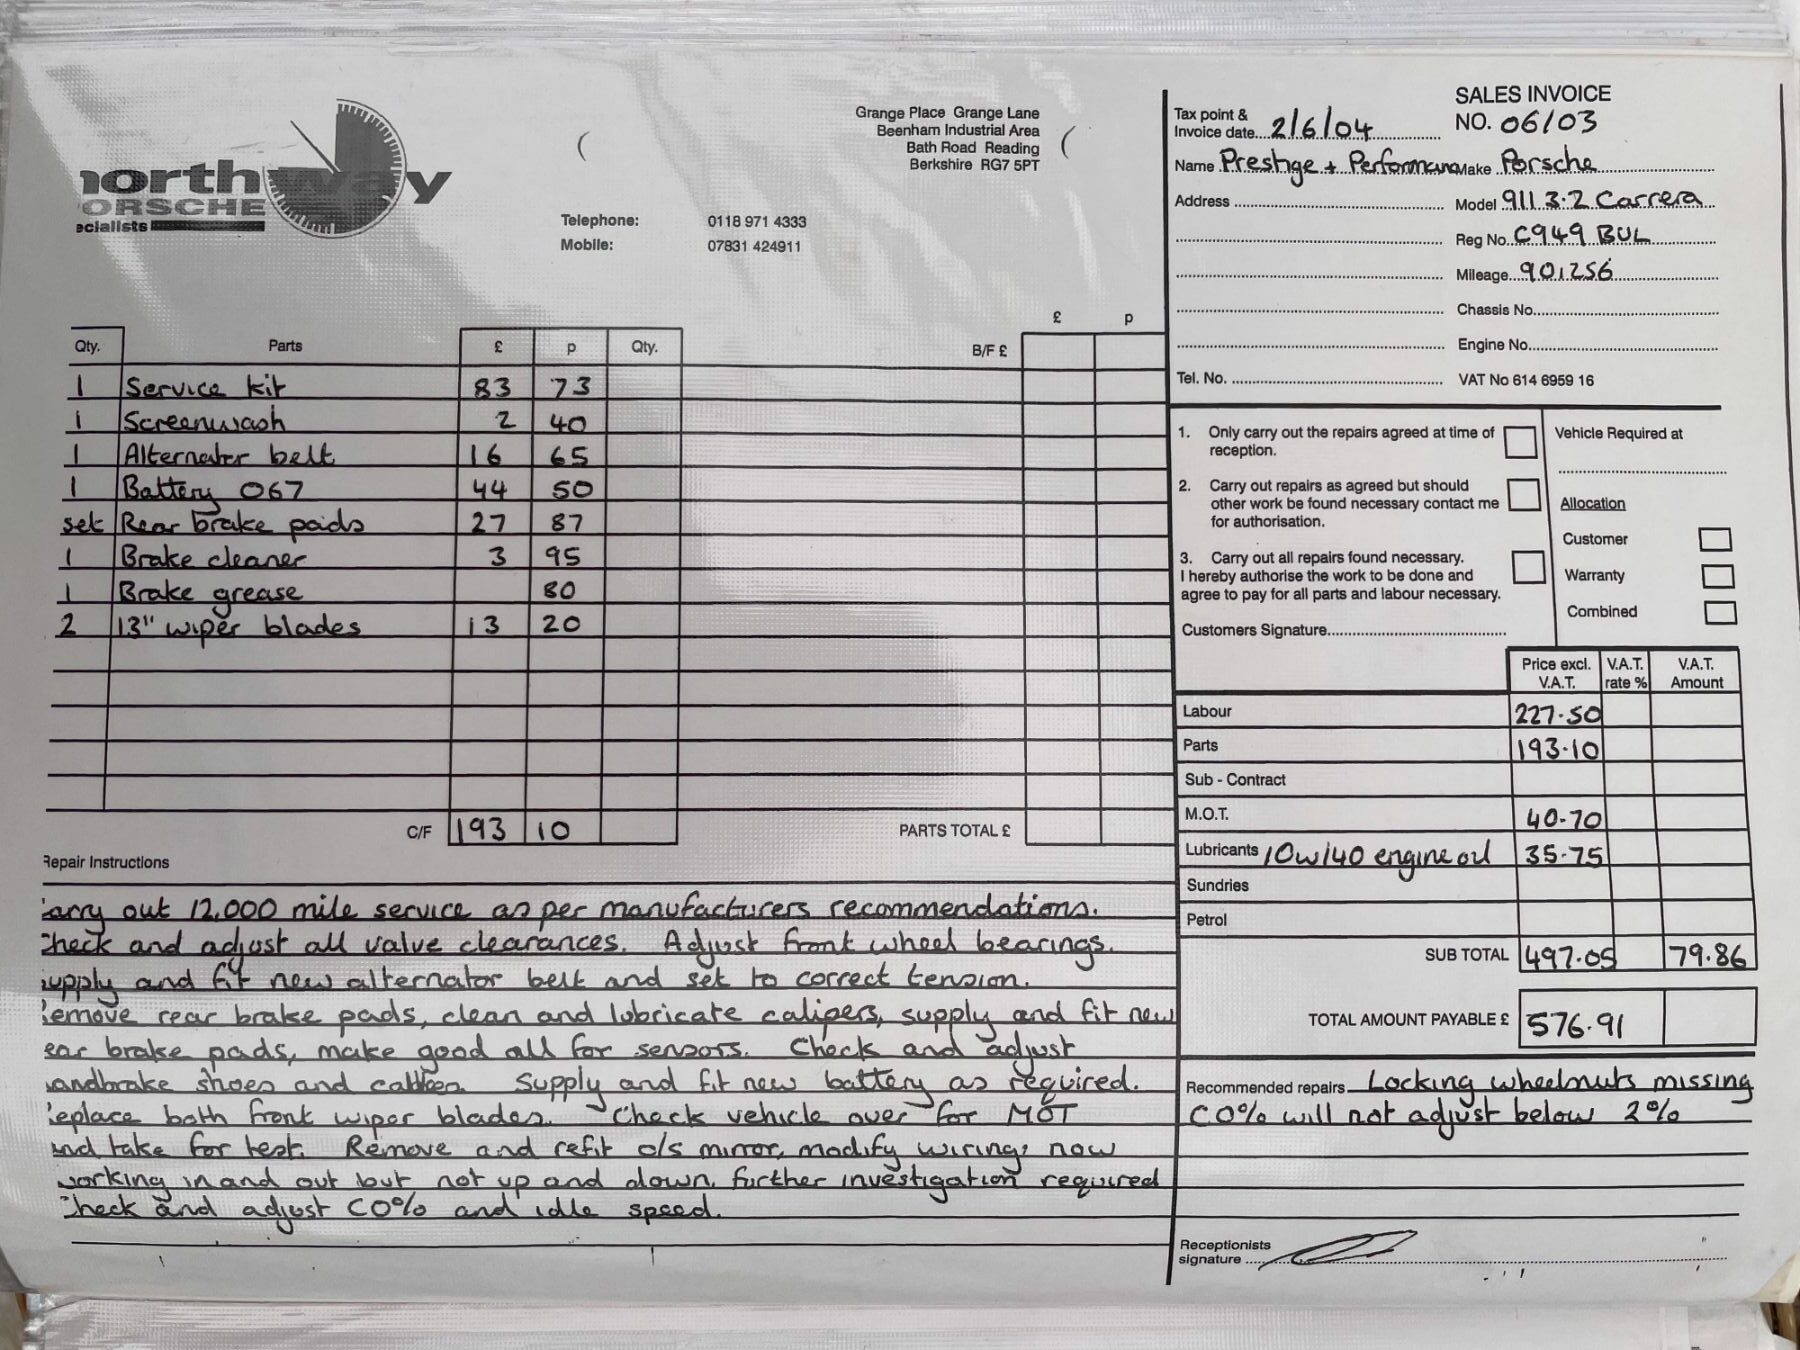 northway
PORSCHE
ecialists
Grange Place Grange Lane
Beenham Industrial Area
Bath Road Reading
Berkshire RG7 5PT
Telephone: 0118 971 4333
Mobile: 07831 424911
SALES INVOICE
NO. 06/03
Tax point &
Invoice date 2/6/04
Name Prestige + Performance
Make Porsche
Address
Model 911 3.2 Carrera
Reg No. C949 BUL
Mileage 901256
Chassis No.
Engine No.
Tel. No.
VAT No 614 6959 16
Qty. Parts £ p Qty. B/F £ £ p
1 Service kit 83 73
1 Screenwash 2 40
1 Alternator belt 16 65
1 Battery 067 44 50
set Rear brake pads 27 87
1 Brake cleaner 3 95
1 Brake grease 80
2 13" wiper blades 13 20
C/F 193 10 PARTS TOTAL £
1. Only carry out the repairs agreed at time of
reception.
2. Carry out repairs as agreed but should
other work be found necessary contact me
for authorisation.
3. Carry out all repairs found necessary.
I hereby authorise the work to be done and
agree to pay for all parts and labour necessary.
Customers Signature
Vehicle Required at
Allocation
Customer
Warranty
Combined
Price excl. V.A.T. V.A.T. rate % V.A.T. Amount
Labour 227.50
Parts 193.10
Sub - Contract
M.O.T. 40.70
Lubricants 10w/40 engine oil 35.75
Sundries
Petrol
SUB TOTAL 497.05 79.86
TOTAL AMOUNT PAYABLE £ 576.91
Repair Instructions
Carry out 12,000 mile service as per manufacturers recommendations.
Check and adjust all valve clearances. Adjust front wheel bearings.
upply and fit new alternator belt and set to correct tension.
Remove rear brake pads, clean and lubricate calipers, supply and fit new
ear brake pads, make good all for sensors. Check and adjust
andbrake shoes and cables. Supply and fit new battery as required.
Replace both front wiper blades. Check vehicle over for MOT
and take for test. Remove and refit o/s mirror, modify wiring, now
working in and out but not up and down, further investigation required
Check and adjust CO% and idle speed.
Recommended repairs Locking wheelnuts missing
CO% will not adjust below 2%
Receptionists
signature